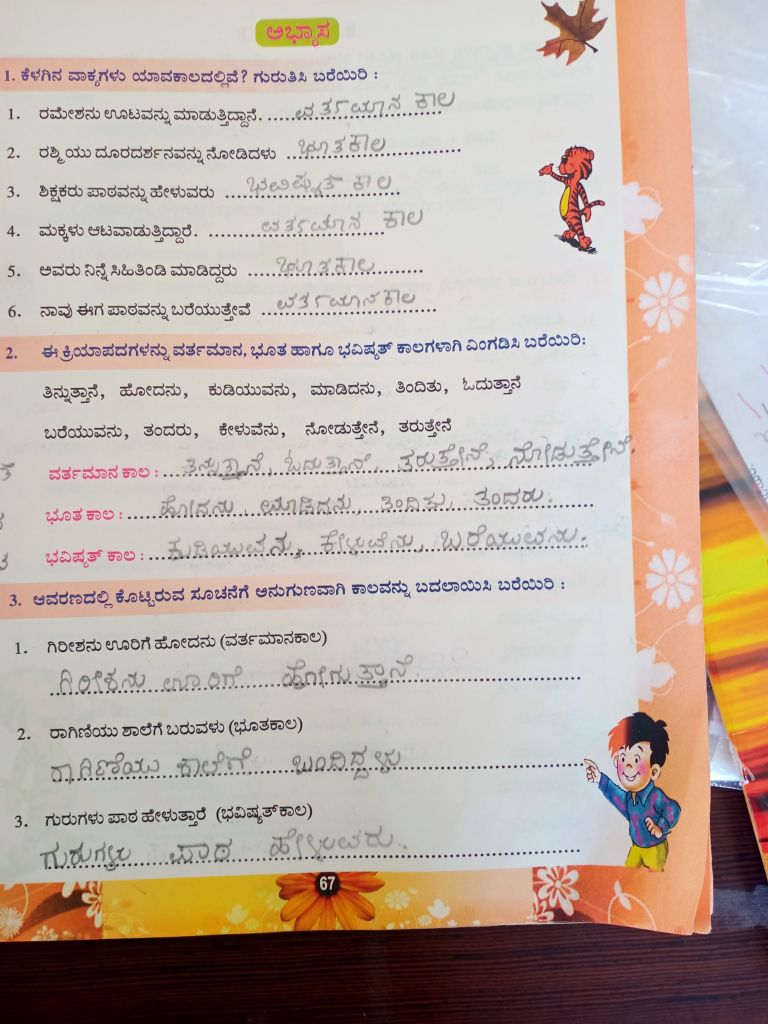 ಅಭ್ಯಾಸ
1. ಕೆಳಗಿನ ವಾಕ್ಯಗಳು ಯಾವಕಾಲದಲ್ಲಿವೆ? ಗುರುತಿಸಿ ಬರೆಯಿರಿ :
1. ರಮೇಶನು ಊಟವನ್ನು ಮಾಡುತ್ತಿದ್ದಾನೆ. ವರ್ತಮಾನ ಕಾಲ
2. ರಶ್ಮಿಯು ದೂರದರ್ಶನವನ್ನು ನೋಡಿದಳು ಭೂತಕಾಲ
3. ಶಿಕ್ಷಕರು ಪಾಠವನ್ನು ಹೇಳುವರು ಭವಿಷ್ಯತ್ ಕಾಲ
4. ಮಕ್ಕಳು ಆಟವಾಡುತ್ತಿದ್ದಾರೆ. ವರ್ತಮಾನ ಕಾಲ
5. ಅವರು ನಿನ್ನೆ ಸಿಹಿತಿಂಡಿ ಮಾಡಿದ್ದರು ಭೂತಕಾಲ
6. ನಾವು ಈಗ ಪಾಠವನ್ನು ಬರೆಯುತ್ತೇವೆ ವರ್ತಮಾನಕಾಲ
2. ಈ ಕ್ರಿಯಾಪದಗಳನ್ನು ವರ್ತಮಾನ, ಭೂತ ಹಾಗೂ ಭವಿಷ್ಯತ್ ಕಾಲಗಳಾಗಿ ವಿಂಗಡಿಸಿ ಬರೆಯಿರಿ:
ತಿನ್ನುತ್ತಾನೆ, ಹೋದನು, ಕುಡಿಯುವನು, ಮಾಡಿದನು, ತಿಂದಿತು, ಓದುತ್ತಾನೆ
ಬರೆಯುವನು, ತಂದರು, ಕೇಳುವೆನು, ನೋಡುತ್ತೇನೆ, ತರುತ್ತೇನೆ
ವರ್ತಮಾನ ಕಾಲ : ತಿನ್ನುತ್ತಾನೆ, ಓದುತ್ತಾನೆ, ತರುತ್ತೇನೆ, ನೋಡುತ್ತೇನೆ.
ಭೂತ ಕಾಲ : ಹೋದನು, ಮಾಡಿದನು, ತಿಂದಿತು, ತಂದರು.
ಭವಿಷ್ಯತ್ ಕಾಲ : ಕುಡಿಯುವನು, ಕೇಳುವೆನು, ಬರೆಯುವನು.
3. ಆವರಣದಲ್ಲಿ ಕೊಟ್ಟಿರುವ ಸೂಚನೆಗೆ ಅನುಗುಣವಾಗಿ ಕಾಲವನ್ನು ಬದಲಾಯಿಸಿ ಬರೆಯಿರಿ :
1. ಗಿರೀಶನು ಊರಿಗೆ ಹೋದನು (ವರ್ತಮಾನಕಾಲ)
ಗಿರೀಶನು ಊರಿಗೆ ಹೋಗುತ್ತಾನೆ.
2. ರಾಗಿಣಿಯು ಶಾಲೆಗೆ ಬರುವಳು (ಭೂತಕಾಲ)
ರಾಗಿಣಿಯು ಶಾಲೆಗೆ ಬಂದಿದ್ದಳು
3. ಗುರುಗಳು ಪಾಠ ಹೇಳುತ್ತಾರೆ (ಭವಿಷ್ಯತ್‌ಕಾಲ)
ಗುರುಗಳು ಪಾಠ ಹೇಳುವರು.
67